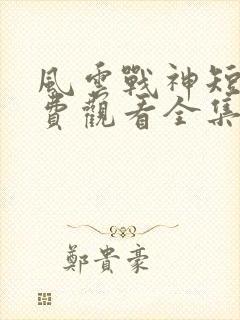 風雲戰神短
費觀看全集
鄭貴豪